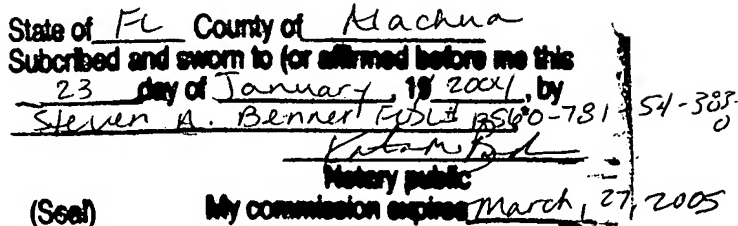 State of FL County of Alachua
Subcribed and sworn to (or affirmed before me this
23 day of January, 19 2001, by
Steven A. Benner FLDL# B560-781-54-383-0
Notary public
(Seal) My commission expires March, 27, 2005